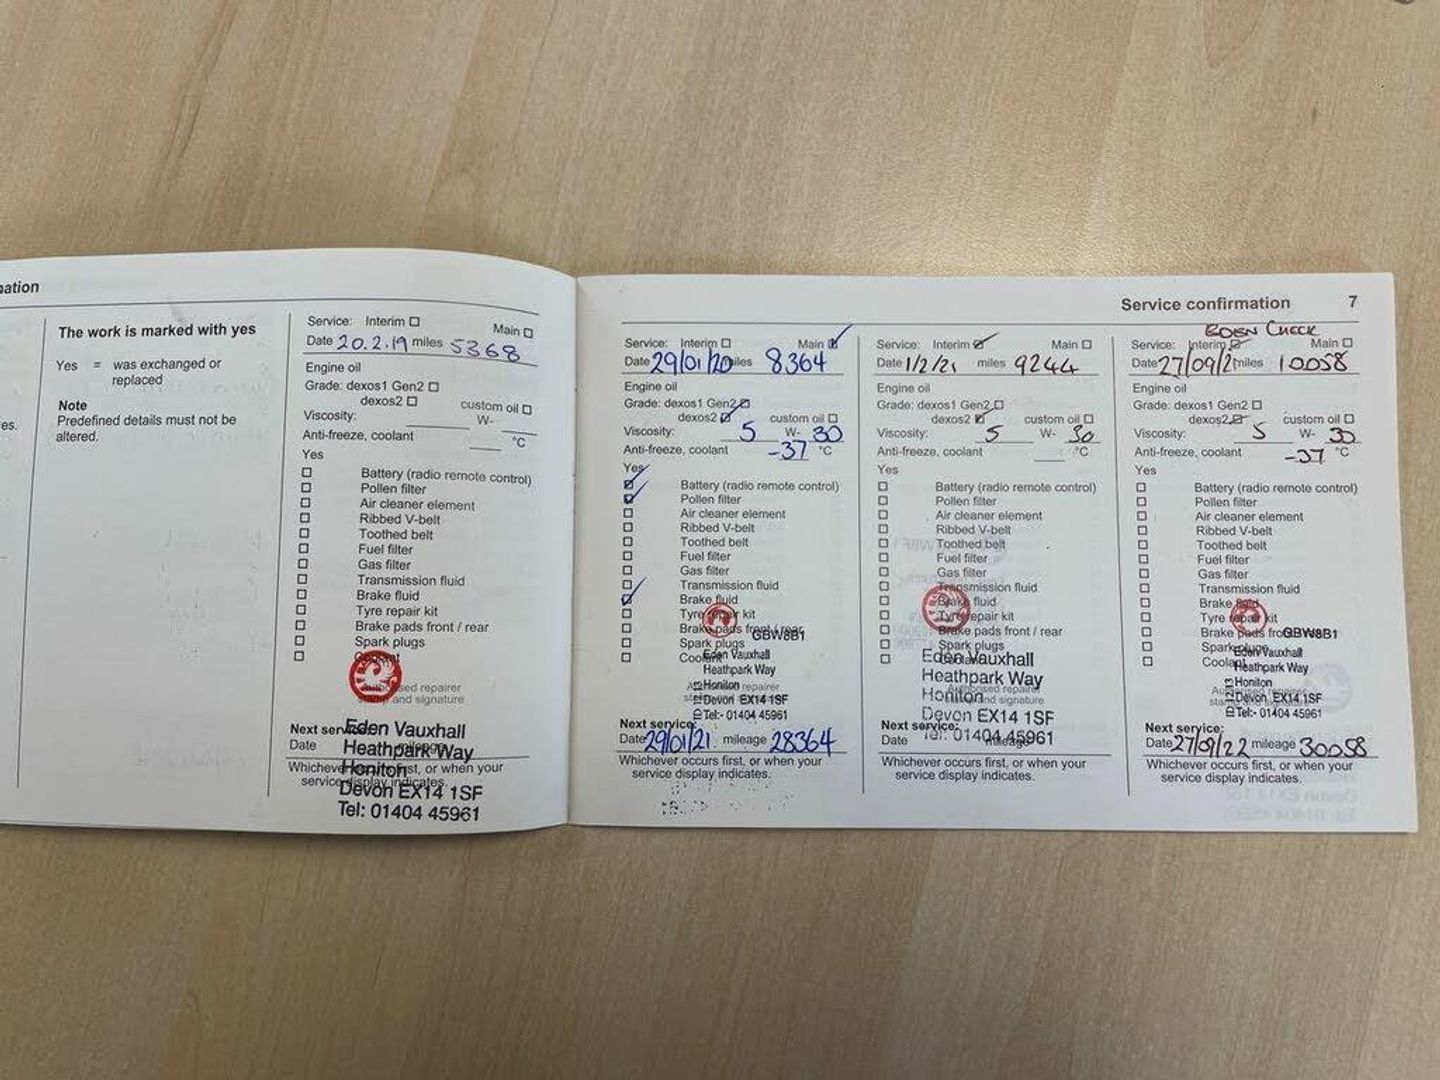 nation
es.
The work is marked with yes
Yes = was exchanged or
replaced
Note
Predefined details must not be
altered.
Service: Interim ☐ Main ☐
Date 20.2.19 miles 5368
Engine oil
Grade: dexos1 Gen2 ☐
dexos2 ☐ custom oil ☐
Viscosity: W-
Anti-freeze, coolant °C
Yes
☐ Battery (radio remote control)
☐ Pollen filter
☐ Air cleaner element
☐ Ribbed V-belt
☐ Toothed belt
☐ Fuel filter
☐ Gas filter
☐ Transmission fluid
☐ Brake fluid
☐ Tyre repair kit
☐ Brake pads front / rear
☐ Spark plugs
☐ Coolant
Authorised repairer
stamp and signature
Eden Vauxhall
Heathpark Way
Honiton
Devon EX14 1SF
Tel: 01404 45961
Next service:
Date mileage
Whichever occurs first, or when your
service display indicates.
Service confirmation 7
Service: Interim ☐ Main ☑
Date 29/01/20 miles 8364
Engine oil
Grade: dexos1 Gen2 ☐
dexos2 ☑ custom oil ☐
Viscosity: 5 W- 30
Anti-freeze, coolant -37 °C
Yes
☑ Battery (radio remote control)
☑ Pollen filter
☐ Air cleaner element
☐ Ribbed V-belt
☐ Toothed belt
☐ Fuel filter
☐ Gas filter
☐ Transmission fluid
☑ Brake fluid
☐ Tyre repair kit
☐ Brake pads front / rear
☐ Spark plugs
☐ Coolant
GBW8B1
Eden Vauxhall
Heathpark Way
Honiton
Devon EX14 1SF
Tel:- 01404 45961
Authorised repairer
stamp and signature
Next service:
Date 29/01/21 mileage 28364
Whichever occurs first, or when your
service display indicates.
Service: Interim ☑ Main ☐
Date 1/2/21 miles 9244
Engine oil
Grade: dexos1 Gen2 ☐
dexos2 ☑ custom oil ☐
Viscosity: 5 W- 30
Anti-freeze, coolant °C
Yes
☐ Battery (radio remote control)
☐ Pollen filter
☐ Air cleaner element
☐ Ribbed V-belt
☐ Toothed belt
☐ Fuel filter
☐ Gas filter
☐ Transmission fluid
☐ Brake fluid
☐ Tyre repair kit
☐ Brake pads front / rear
☐ Spark plugs
☐ Coolant
Eden Vauxhall
Heathpark Way
Honiton
Devon EX14 1SF
Tel: 01404 45961
Authorised repairer
stamp and signature
Next service:
Date mileage
Whichever occurs first, or when your
service display indicates.
EDEN CHECK
Service: Interim ☑ Main ☐
Date 27/09/21 miles 10058
Engine oil
Grade: dexos1 Gen2 ☐
dexos2 ☑ custom oil ☐
Viscosity: 5 W- 30
Anti-freeze, coolant -37 °C
Yes
☐ Battery (radio remote control)
☐ Pollen filter
☐ Air cleaner element
☐ Ribbed V-belt
☐ Toothed belt
☐ Fuel filter
☐ Gas filter
☐ Transmission fluid
☐ Brake fluid
☐ Tyre repair kit
☐ Brake pads front
☐ Spark plugs
☐ Coolant
GBW8B1
Eden Vauxhall
Heathpark Way
Honiton
Devon EX14 1SF
Tel:- 01404 45961
Next service:
Date 27/09/22 mileage 30058
Whichever occurs first, or when your
service display indicates.